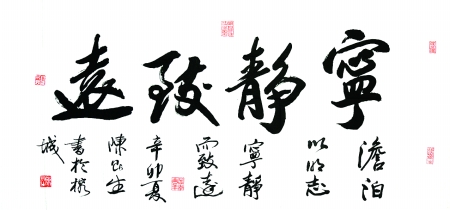 寧靜致遠
澹泊
以明志
寧靜
而致遠
辛卯夏
陳昆生
書於榕
城